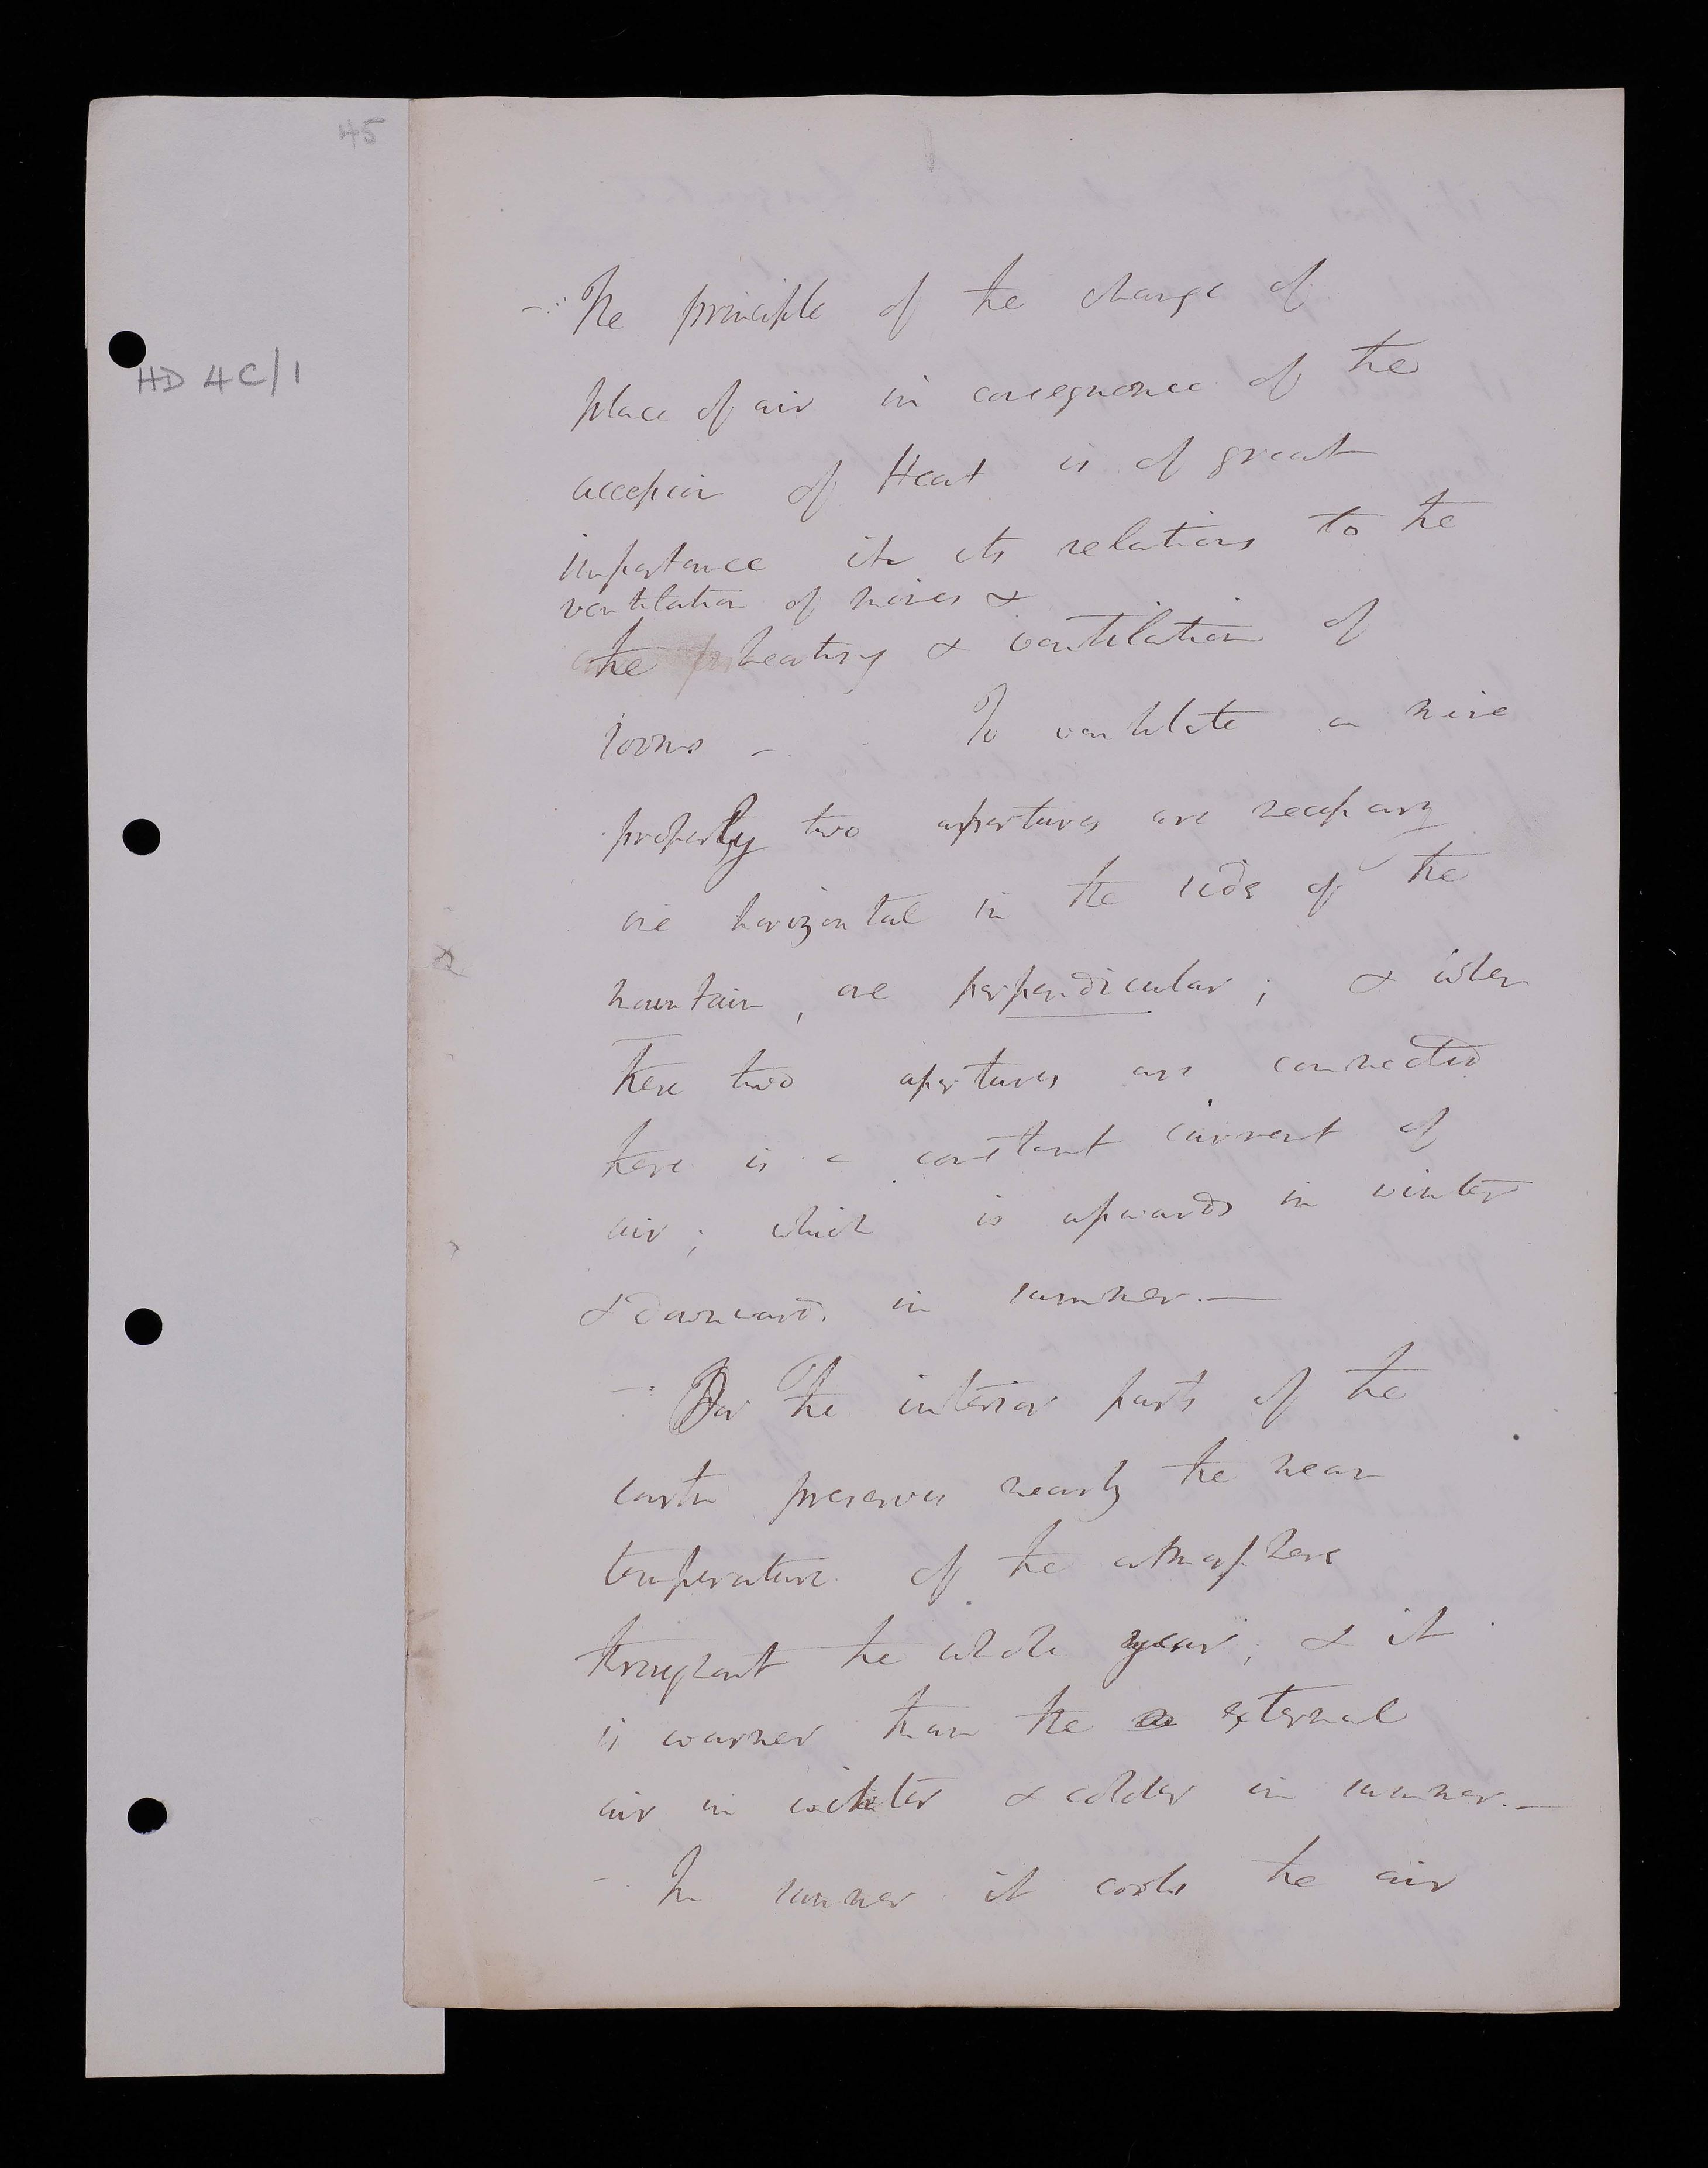 45
HD 4C/1
-: The principle of the change of
place of air in consequence of the
accession of Heat is of great
importance in its relations to the
ventilation of mines &
the heating & ventilation of
rooms - To ventilate a mine
properly two apertures are necessary
one horizontal in the side of the
mountain, one perpendicular; & when
these two apertures are connected
there is a constant current of
air; which is upwards in winter
& downward. in summer. —
-: For the interior parts of the
earth preserves nearly the mean
temperature of the atmosphere
throughout the whole year; & it
is warmer than the external
air in winter & colder in summer. —
- In summer it cools the air